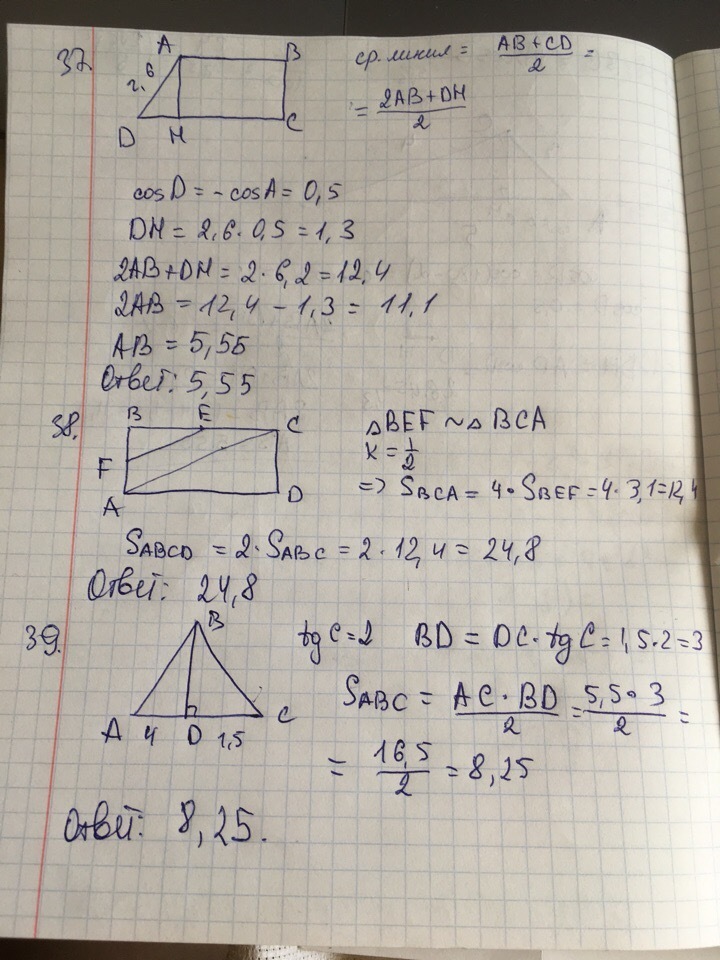 37.
A B
2,6
D H C
ср. линия = AB+CD/2 =
= 2AB+DH/2
cosD = -cosA = 0,5
DH = 2,6 · 0,5 = 1,3
2AB+DH = 2 · 6,2 = 12,4
2AB = 12,4 - 1,3 = 11,1
AB = 5,55
Ответ: 5,55
38.
B E C
F
A D
△BEF ~ △BCA
k = 1/2
=> SBCA = 4 · SBEF = 4 · 3,1 = 12,4
SABCD = 2 · SABC = 2 · 12,4 = 24,8
Ответ: 24,8
39.
B
A 4 D 1,5 C
tgC = 2 BD = DC · tgC = 1,5 · 2 = 3
SABC = AC · BD/2 = 5,5 · 3/2 =
= 16,5/2 = 8,25
Ответ: 8,25.